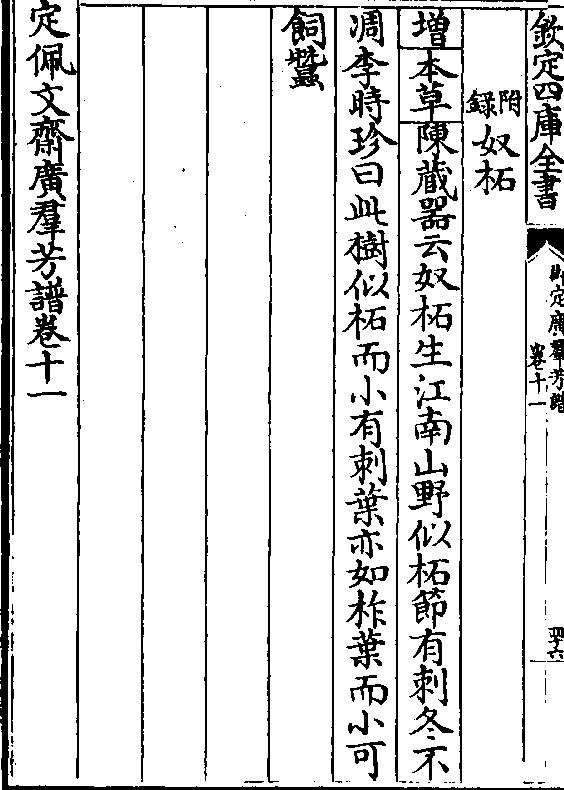 欽定四庫全書
御定廣羣芳譜
卷十一
四十六
附錄奴柘
增本草陳藏器云奴柘生江南山野似柘節有刺冬不
凋李時珍曰此樹似柘而小有刺葉亦如柞葉而小可
飼蠶
定佩文齋廣羣芳譜卷十一